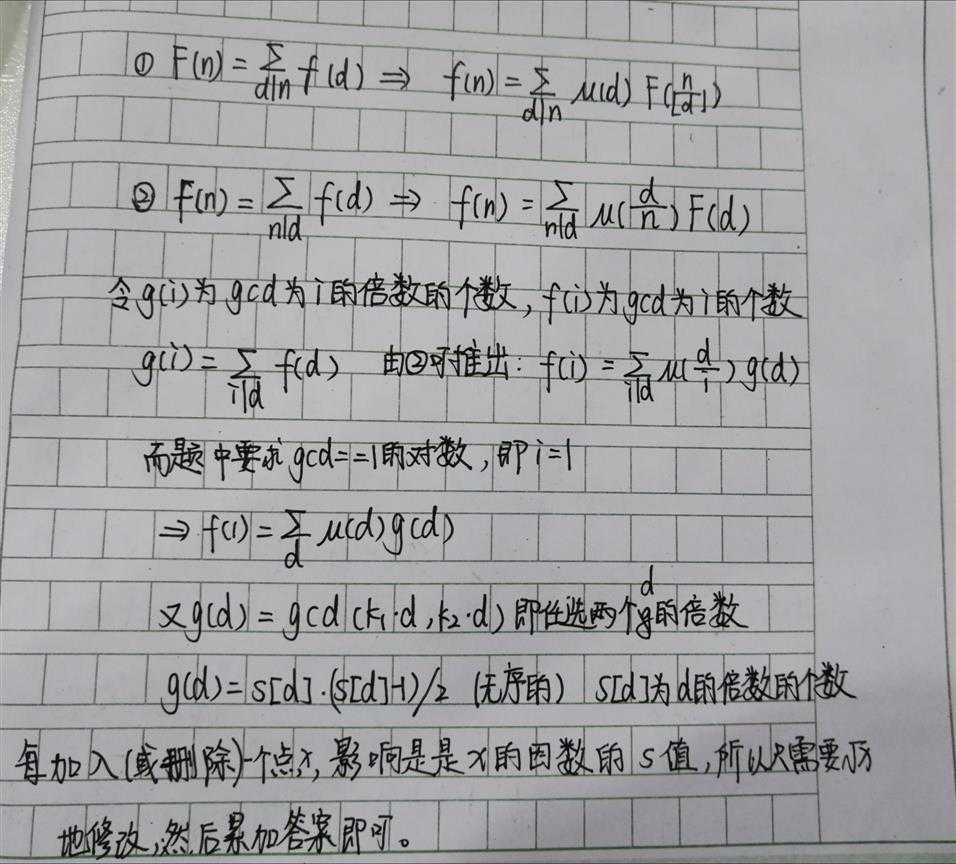 ① F(n) = Σ_{d|n} f(d) ⇒ f(n) = Σ_{d|n} μ(d) F([n/d])
② F(n) = Σ_{n|d} f(d) ⇒ f(n) = Σ_{n|d} μ(d/n) F(d)
令g(i)为gcd为i的倍数的个数, f(i)为gcd为i的个数
g(i) = Σ_{i|d} f(d) 由②可推出: f(i) = Σ_{i|d} μ(d/i) g(d)
而题中要求gcd==1的对数, 即i=1
⇒ f(1) = Σ_d μ(d) g(d)
又g(d) = gcd(k₁·d, k₂·d) 即任选两个d的倍数
g(d) = s[d]·(s[d]-1)/2 (无序的) s[d]为d的倍数的个数
每加入(或删除)一个点x, 影响是是x的因数的s值, 所以只需要√x
地修改, 然后累加答案即可。